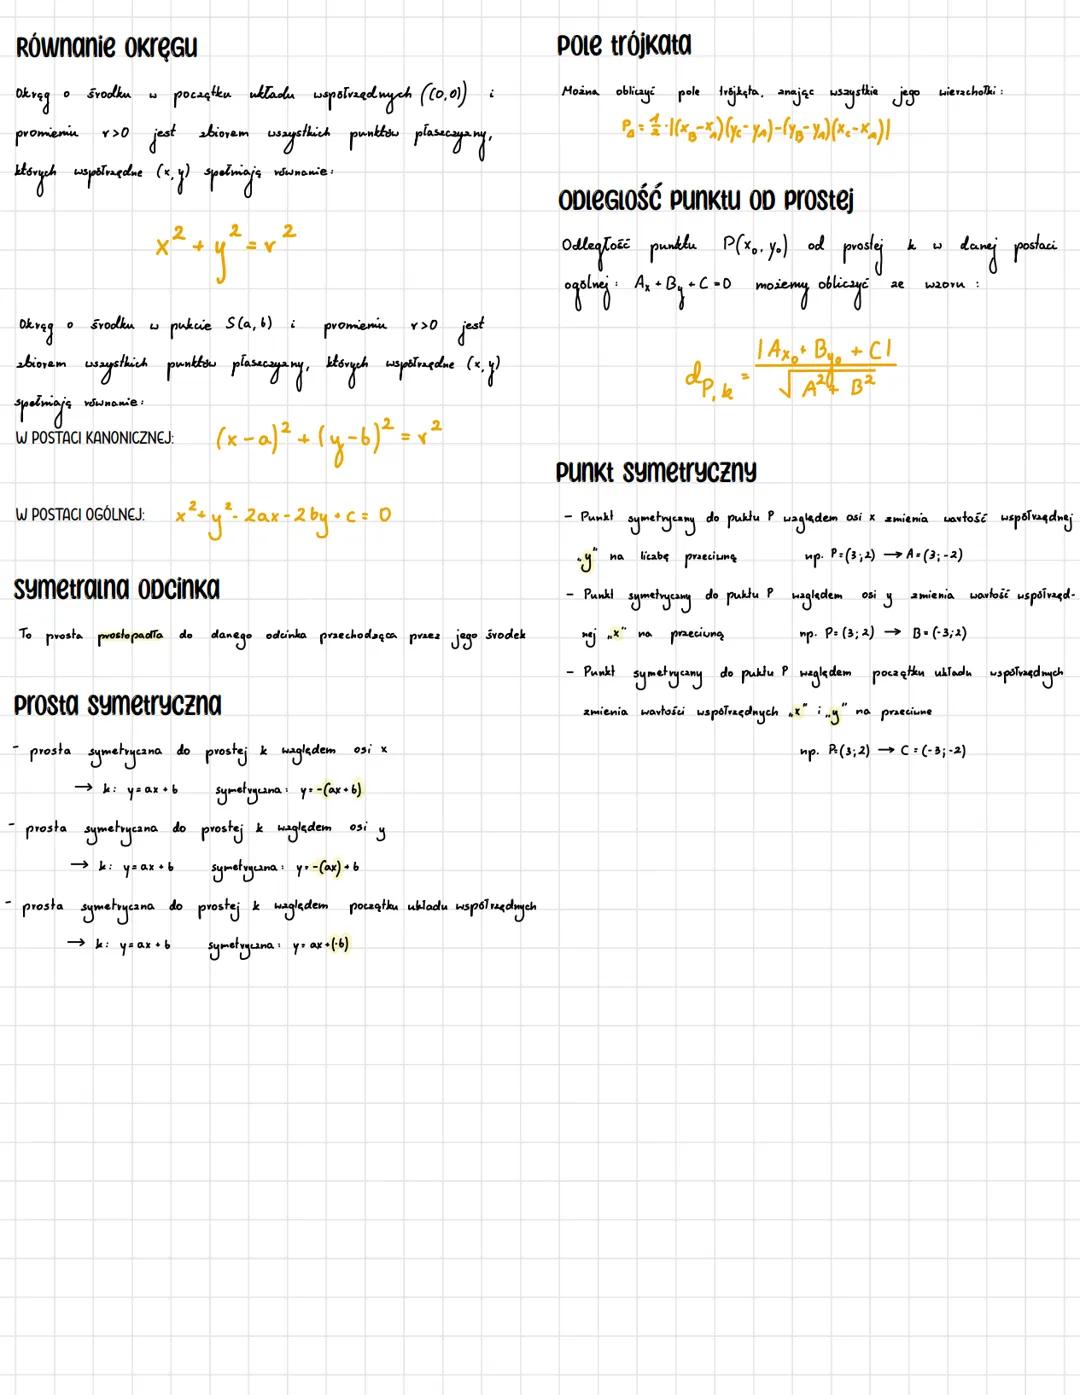 RÓWNANIE OKRĘGU
Okrąg o środku w początku układu współrzędnych ((0,0)) i
promieniu r>0 jest zbiorem wszystkich punktów płaszczyzny,
których współrzędne (x,y) spełniają równanie:
x² + y² = r²
Okrąg o środku w pukcie S(a,b) i promieniu r>0 jest
zbiorem wszystkich punktów płaszczyzny, których współrzędne (x,y)
spełniają równanie:
W POSTACI KANONICZNEJ: (x-a)² + (y-b)² = r²
W POSTACI OGÓLNEJ: x² + y² - 2ax - 2by + c = 0
SYMETRALNA ODCINKA
To prosta prostopadła do danego odcinka przechodząca przez jego środek
PROSTA SYMETRYCZNA
- prosta symetryczna do prostej k względem osi x
→ k: y = ax + b symetryczna: y = -(ax+b)
- prosta symetryczna do prostej k względem osi y
→ k: y = ax + b symetryczna: y = -(ax) + b
- prosta symetryczna do prostej k względem początku układu współrzędnych
→ k: y = ax + b symetryczna: y = ax + (-b)
POLE TRÓJKATA
Można obliczyć pole trójkąta, znając wszystkie jego wierzchołki:
P△ = 1/2 · |(x_B - x_A)(y_C - y_A) - (y_B - y_A)(x_C - x_A)|
ODLEGŁOŚĆ PUNKTU OD PROSTEJ
Odległość punktu P(x₀, y₀) od prostej k w danej postaci
ogólnej: Ax + By + C = 0 możemy obliczyć ze wzoru:
d_P,k = |Ax₀ + By₀ + C| / √A² + B²
PUNKT SYMETRYCZNY
- Punkt symetryczny do puktu P względem osi x zmienia wartość współrzędnej
„y" na liczbę przeciwną np. P=(3;2) → A=(3;-2)
- Punkt symetryczny do puktu P względem osi y zmienia wartość współrzęd-
nej „x" na przeciwną np. P=(3;2) → B=(-3;2)
- Punkt symetryczny do puktu P względem początku układu współrzędnych
zmienia wartości współrzędnych „x" i „y" na przeciwne
np. P=(3;2) → C=(-3;-2)